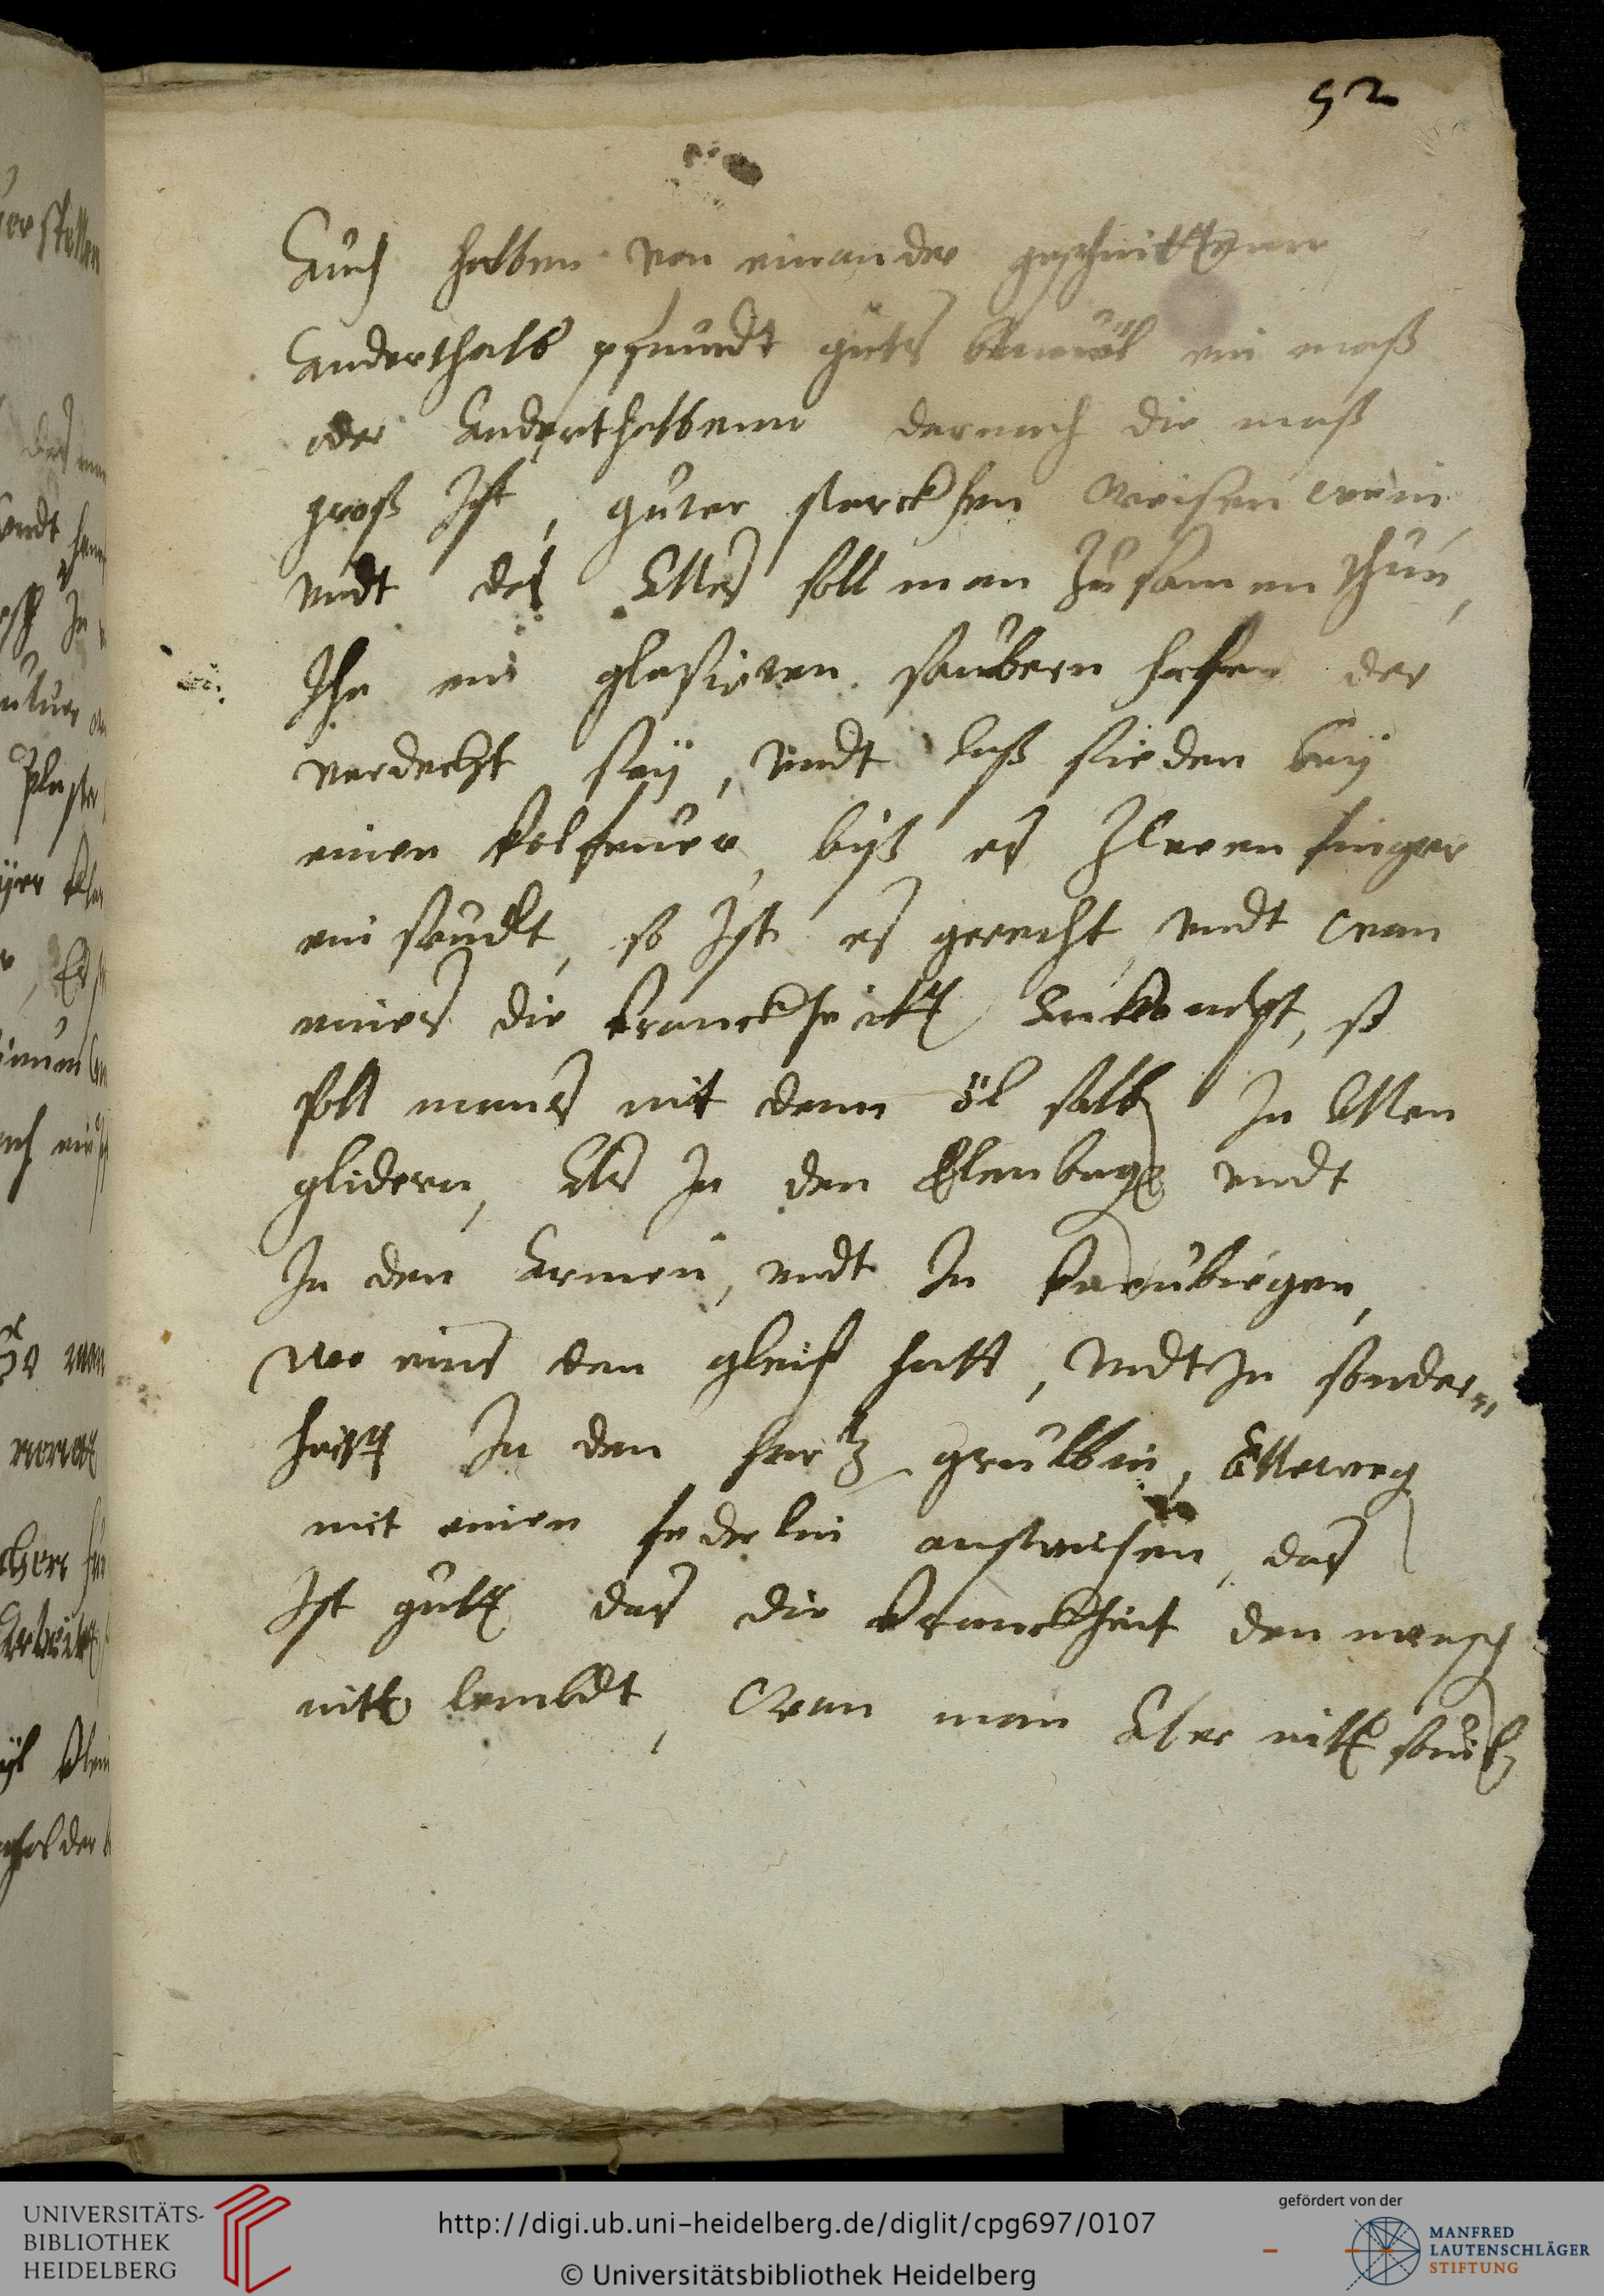 52
Auch halben von einander geschnittenn
Anderthalb pfundt guts baumöl ein maß
oder Anderthalbenn darnach die maß
groß Ist, guter starckhen Weisen wein
vndt des Alles soll man Zusamen thun,
Ihn ein glasirten saubern hafen der
verdeckht seÿ, vndt laß sieden beÿ
einen kolfeuer, biß es Zwen finger
ein seudt, so Ist es gerecht, vndt Wan
eines die kranckheitt Ankombt, so
soll mans mit dem öl salben In Allen
glidern, Als In den Elenbogen vndt
In den Armen, vndt In kneubiegen,
wo eins den gleich hatt, vndt In sonder„
heitt In den hertz greublin, Alleweg
mit einen federlin anstreichen, das
Ist gutt das die kranckheit den mensch
nitt lembdt, Wan man Aber nitt souil
UNIVERSITÄTS-
BIBLIOTHEK
HEIDELBERG
http://digi.ub.uni-heidelberg.de/diglit/cpg697/0107
© Universitätsbibliothek Heidelberg
gefördert von der
MANFRED
LAUTENSCHLÄGER
STIFTUNG